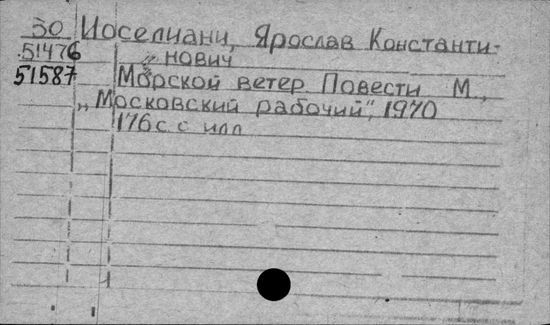 30 Иоселиани, Ярослав Константи-
51476 нович
51587 Морской ветер Повести М.,
„Московский рабочий", 1970
176 с. с илл